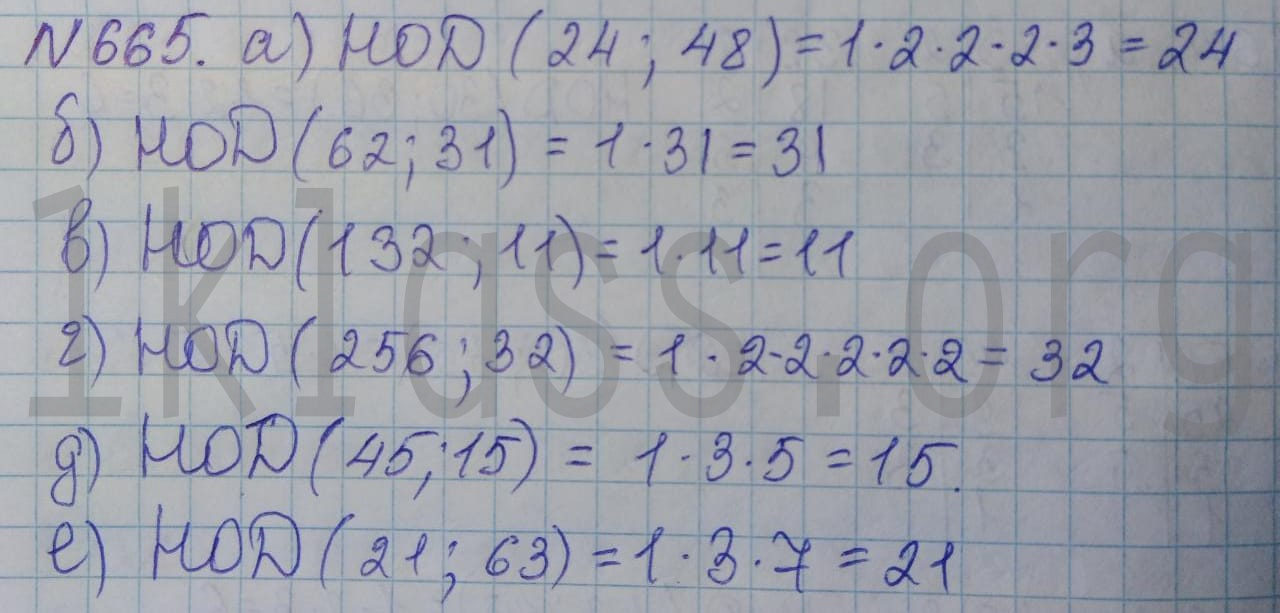 N665. а) НОД (24; 48) = 1·2·2·2·3 = 24
б) НОД (62; 31) = 1·31 = 31
в) НОД (132; 11) = 1·11 = 11
г) НОД (256; 32) = 1·2·2·2·2·2 = 32
д) НОД (45; 15) = 1·3·5 = 15.
е) НОД (21; 63) = 1·3·7 = 21
1klass.org